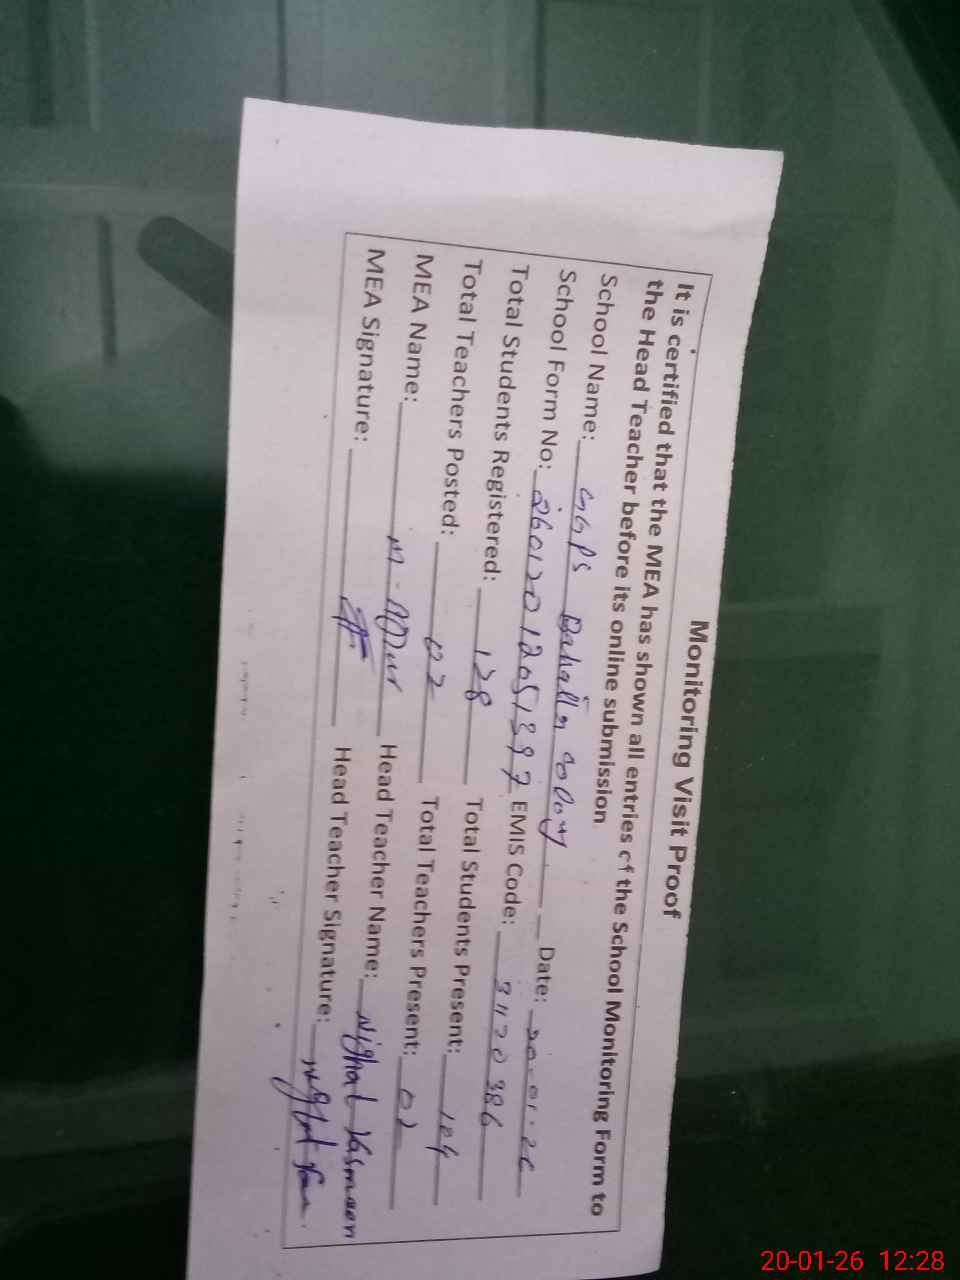 Monitoring Visit Proof
It is certified that the MEA has shown all entries of the School Monitoring Form to
the Head Teacher before its online submission
School Name: GGPS Bahalla colony Date: 20-01-26
School Form No: 26012012051397 EMIS Code: 31120386
Total Students Registered: 128 Total Students Present: 104
Total Teachers Posted: 02 Total Teachers Present: 02
MEA Name: Head Teacher Name: Nighat Yasmeen
MEA Signature: Head Teacher Signature:
20-01-26 12:28